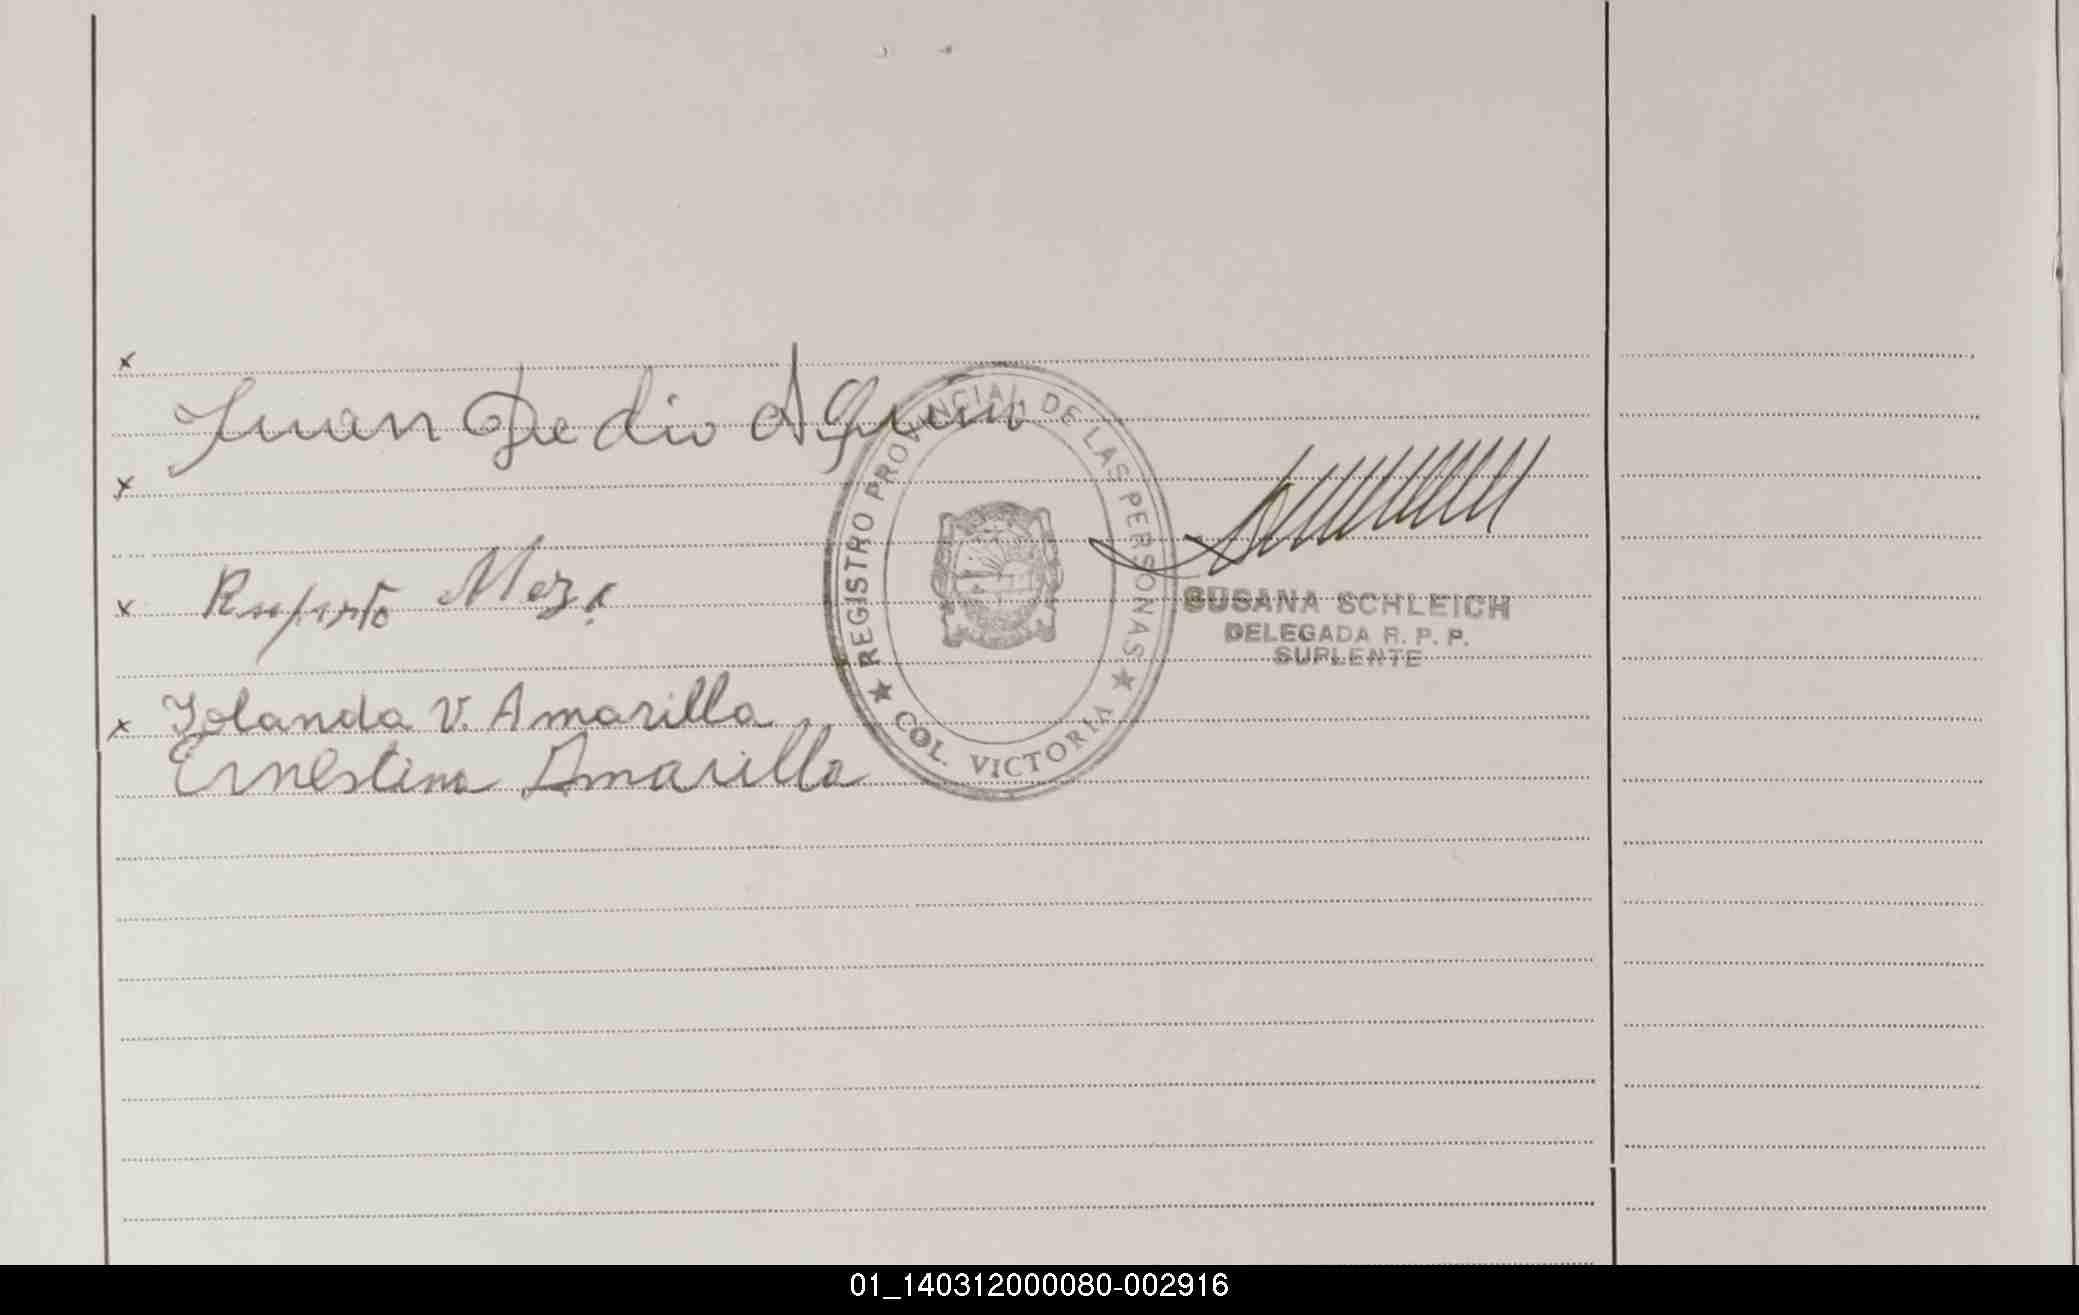 x
Juan Pedro Aquino
x
x Ruperto Meza
x Yolanda V. Amarilla
Ernestina Amarilla
★ REGISTRO PROVINCIAL DE LAS PERSONAS ★
COL. VICTORIA
SUSANA SCHLEICH
DELEGADA R. P. P.
SUPLENTE
01_140312000080-002916